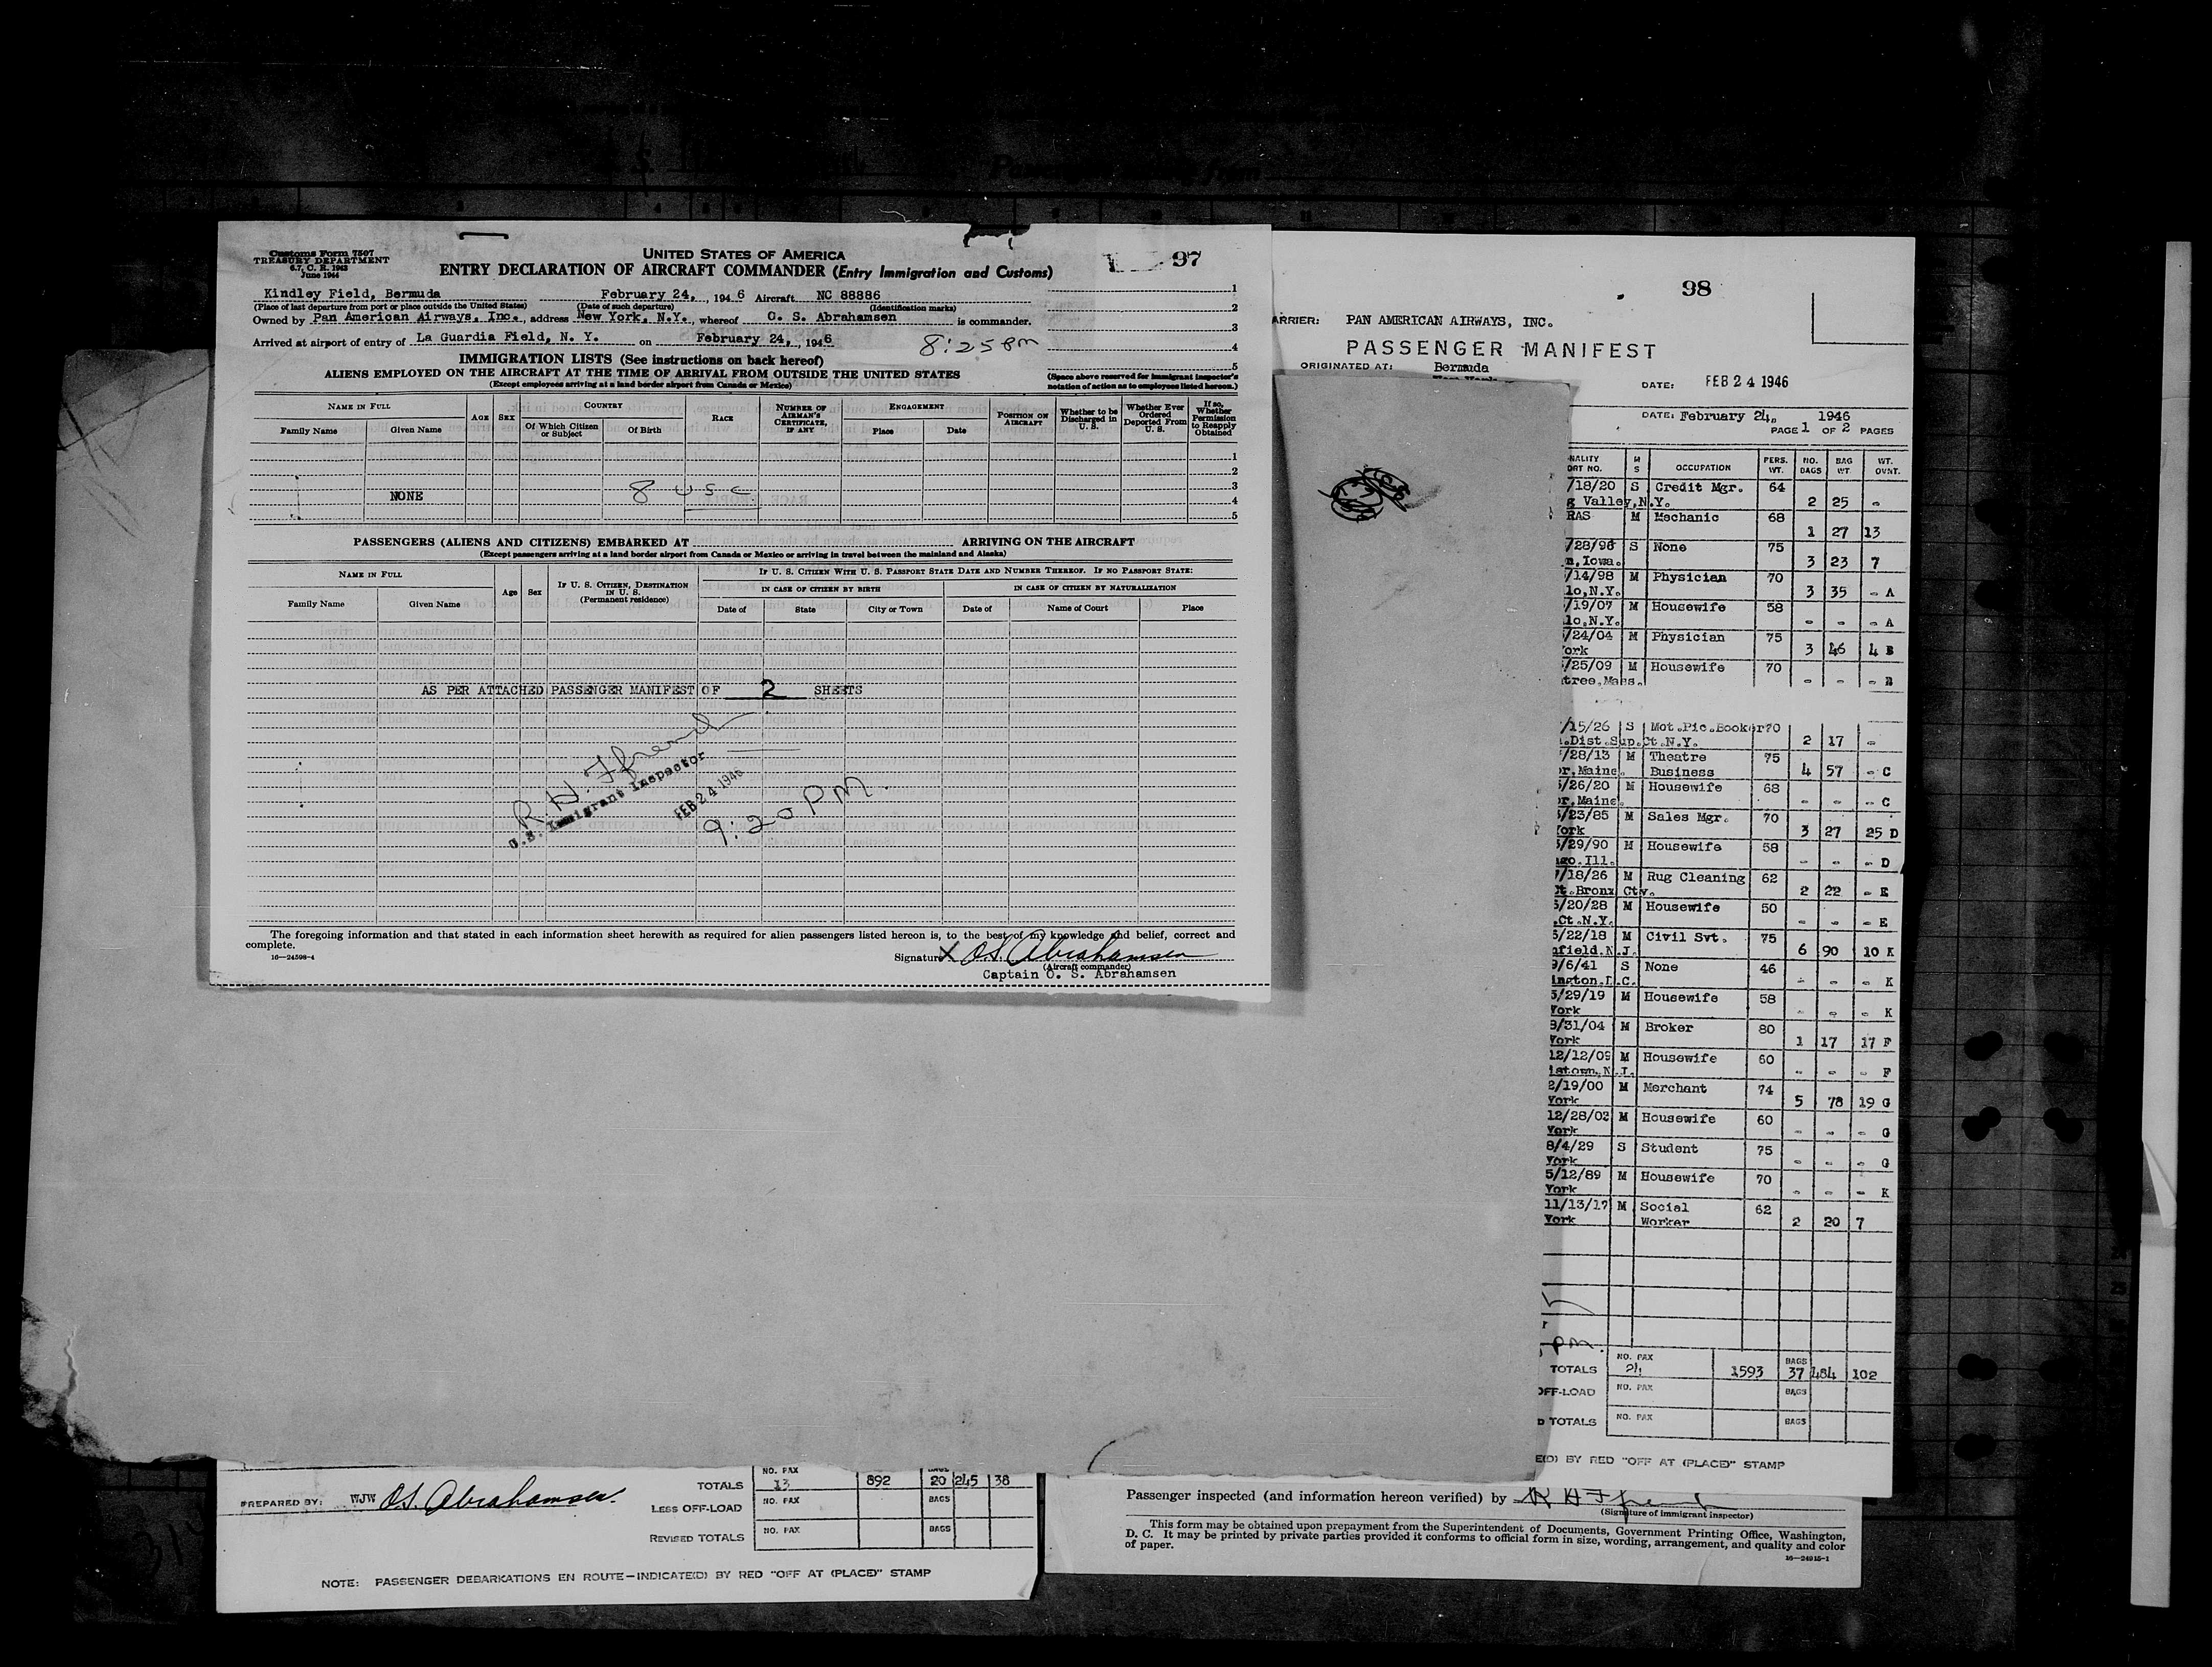 Customs Form 7507
TREASURY DEPARTMENT
6.7, C. R. 1943
June 1944
UNITED STATES OF AMERICA
ENTRY DECLARATION OF AIRCRAFT COMMANDER (Entry Immigration and Customs)
97
Kindley Field, Bermuda February 24, , 194 6 Aircraft NC 88886
(Place of last departure from port or place outside the United States) (Date of such departure) (Identification marks)
Owned by Pan American Airways, Inc., address New York, N.Y., whereof O. S. Abrahamsen is commander.
Arrived at airport of entry of La Guardia Field, N. Y. on February 24, , 1946
8:25 PM
1
2
3
4
5
(Space above reserved for immigrant inspector's
notation of action as to employees listed hereon.)
IMMIGRATION LISTS (See instructions on back hereof)
ALIENS EMPLOYED ON THE AIRCRAFT AT THE TIME OF ARRIVAL FROM OUTSIDE THE UNITED STATES
(Except employees arriving at a land border airport from Canada or Mexico)
NAME IN FULL
Family Name Given Name
AGE SEX
COUNTRY
Of Which Citizen or Subject Of Birth
RACE
NUMBER OF AIRMAN'S CERTIFICATE, IF ANY
ENGAGEMENT
Place Date
POSITION ON AIRCRAFT
Whether to be Discharged in U. S.
Whether Ever Ordered Deported From U. S.
If so, Whether Permission to Reapply Obtained
1
2
3
4
5
NONE
8 USC
PASSENGERS (ALIENS AND CITIZENS) EMBARKED AT ARRIVING ON THE AIRCRAFT
(Except passengers arriving at a land border airport from Canada or Mexico or arriving in travel between the mainland and Alaska)
NAME IN FULL
Family Name Given Name
Age Sex
IF U. S. CITIZEN, DESTINATION IN U. S. (Permanent residence)
IF U. S. CITIZEN WITH U. S. PASSPORT STATE DATE AND NUMBER THEREOF. IF NO PASSPORT STATE:
IN CASE OF CITIZEN BY BIRTH IN CASE OF CITIZEN BY NATURALIZATION
Date of State City or Town Date of Name of Court Place
AS PER ATTACHED PASSENGER MANIFEST OF 2 SHEETS
R. H. Ffrench
U.S. Immigrant Inspector
FEB 24 1946
9:20 PM.
The foregoing information and that stated in each information sheet herewith as required for alien passengers listed hereon is, to the best of my knowledge and belief, correct and
complete.
16—24598-4
Signature X O.S. Abrahamsen
(Aircraft commander)
Captain O. S. Abrahamsen
98
ARRIER: PAN AMERICAN AIRWAYS, INC.
PASSENGER MANIFEST
ORIGINATED AT: Bermuda
DATE: FEB 24 1946
DATE: February 24, 1946
PAGE 1 OF 2 PAGES
NALITY M PERS. NO. BAG WT.
ORT NO. S OCCUPATION WT. BAGS WT. OVNT.
/18/20 S Credit Mgr. 64
g Valley,N.Y. 2 25 -
RAS M Mechanic 68
1 27 13
/28/96 S None 75
n,Iowa. 3 23 7
/14/98 M Physician 70
lo,N.Y. 3 35 - A
/19/07 M Housewife 58
lo,N.Y. - - - A
/24/04 M Physician 75
ork 3 46 4 B
/25/09 M Housewife 70
tree,Mass. - - - B
/15/26 S Mot.Pic.Booker 70
.Dist.Sup.Ct.N.Y. 2 17 -
/28/13 M Theatre 75
or,Maine. Business 4 57 - C
/26/20 M Housewife 68
or,Maine. - - - C
/23/85 M Sales Mgr. 70
York 3 27 25 D
/29/90 M Housewife 58
ago,Ill. - - - D
/18/26 M Rug Cleaning 62
t.Bronx Cty. 2 22 - E
/20/28 M Housewife 50
.Ct.N.Y. - - - E
5/22/18 M Civil Svt. 75
nfield.N.J. 6 90 10 K
9/6/41 S None 46
ington,D.C. - - - K
5/29/19 M Housewife 58
York - - - K
8/31/04 M Broker 80
York 1 17 17 F
12/12/09 M Housewife 60
istown,N.J. - - - F
2/19/00 M Merchant 74
York 5 78 19 G
12/28/02 M Housewife 60
York - - - G
8/4/29 S Student 75
York - - - G
5/12/89 M Housewife 70
York - - - K
11/13/17 M Social 62
York Worker 2 20 7
PM.
NO. PAX BAGS
TOTALS 24 1593 37 484 102
OFF-LOAD NO. PAX BAGS
D TOTALS NO. PAX BAGS
E(D) BY RED "OFF AT (PLACE)" STAMP
PREPARED BY: WJW O.S. Abrahamsen.
NO. PAX BAGS
TOTALS 13 892 20 245 38
LESS OFF-LOAD NO. PAX BAGS
REVISED TOTALS NO. PAX BAGS
NOTE: PASSENGER DEBARKATIONS EN ROUTE—INDICATE(D) BY RED "OFF AT (PLACE)" STAMP
Passenger inspected (and information hereon verified) by R H Ffrench
(Signature of immigrant inspector)
This form may be obtained upon prepayment from the Superintendent of Documents, Government Printing Office, Washington,
D. C. It may be printed by private parties provided it conforms to official form in size, wording, arrangement, and quality and color
of paper.
16—24915-1